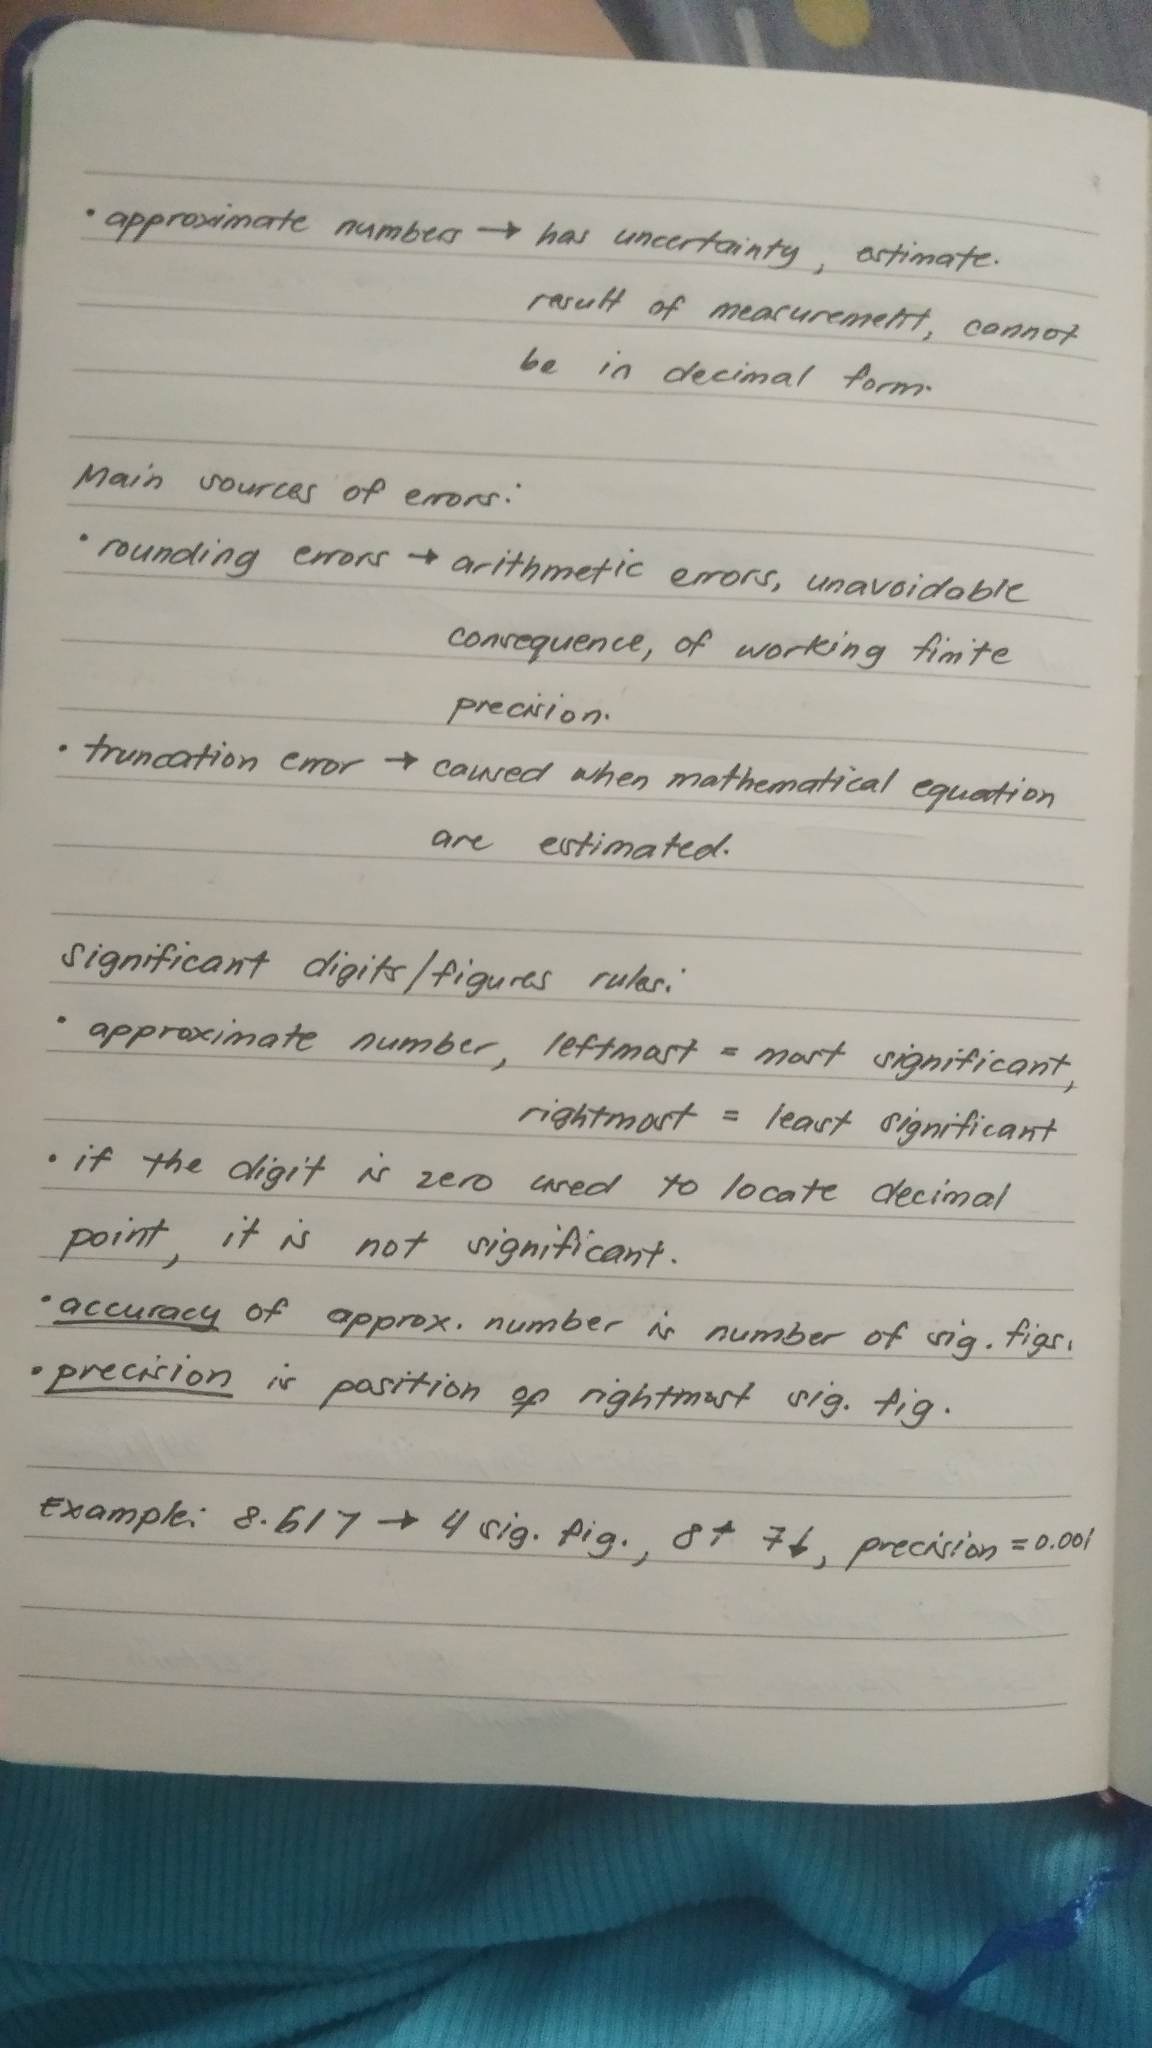 • approximate numbers → has uncertainty, estimate.
result of measurement, cannot
be in decimal form.
Main sources of errors:
• rounding errors → arithmetic errors, unavoidable
consequence, of working finite
precision.
• truncation error → caused when mathematical equation
are estimated.
Significant digits/figures rules:
• approximate number, leftmost = most significant,
rightmost = least significant
• if the digit is zero used to locate decimal
point, it is not significant.
• accuracy of approx. number is number of sig. figs.
• precision is position of rightmost sig. fig.
Example: 8.617 → 4 sig. fig., 8↑ 7↓, precision = 0.001